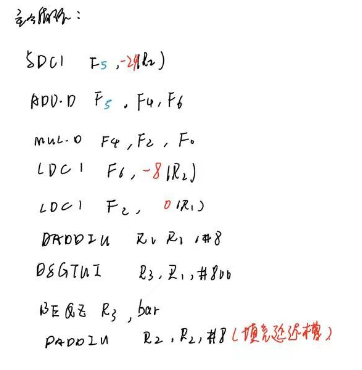 SDC1 F5, -24(R2)
ADD.D F5, F4, F6
MUL.D F4, F2, F0
LDC1 F6, -8(R2)
LDC1 F2, 0(R1)
DADDIU R1, R1, #8
DSGTUI R3, R1, #800
BEQZ R3, bar
DADDIU R2, R2, #8 (填充延迟槽)